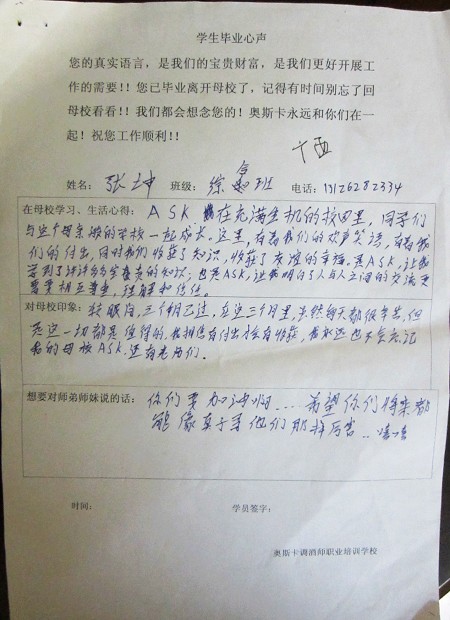 学生毕业心声
您的真实语言，是我们的宝贵财富，是我们更好开展工
作的需要！！您已毕业离开母校了，记得有时间别忘了回
母校看看！！我们都会想念您的！奥斯卡永远和你们在一
起！祝您工作顺利！！
姓名：张坤 班级：徐 班 电话：13126282334
在母校学习、生活心得：ASK 在充满生机的校园里，同学们
与这个母亲般的学校一起成长。这里，有着我们的欢声笑语，有着我
们的付出，同时我们收获了知识，收获了友谊的幸福。是ASK，让我
学到了许许多多专业的知识；也是ASK，让我明白了人与人之间的交流更
需要相互尊重，理解和信任。
对母校印象：转眼间，三个月已过，在这三个月里，虽然每天都很辛苦，但
是这一切都是值得的，我相信有付出才会有收获，我永远也不会忘记
我的母校ASK。还有老师们。
想要对师弟师妹说的话：你们要加油啊....希望你们将来都
能像真子哥他们那样厉害..嘻嘻
时间： 学员签字：
奥斯卡调酒师职业培训学校